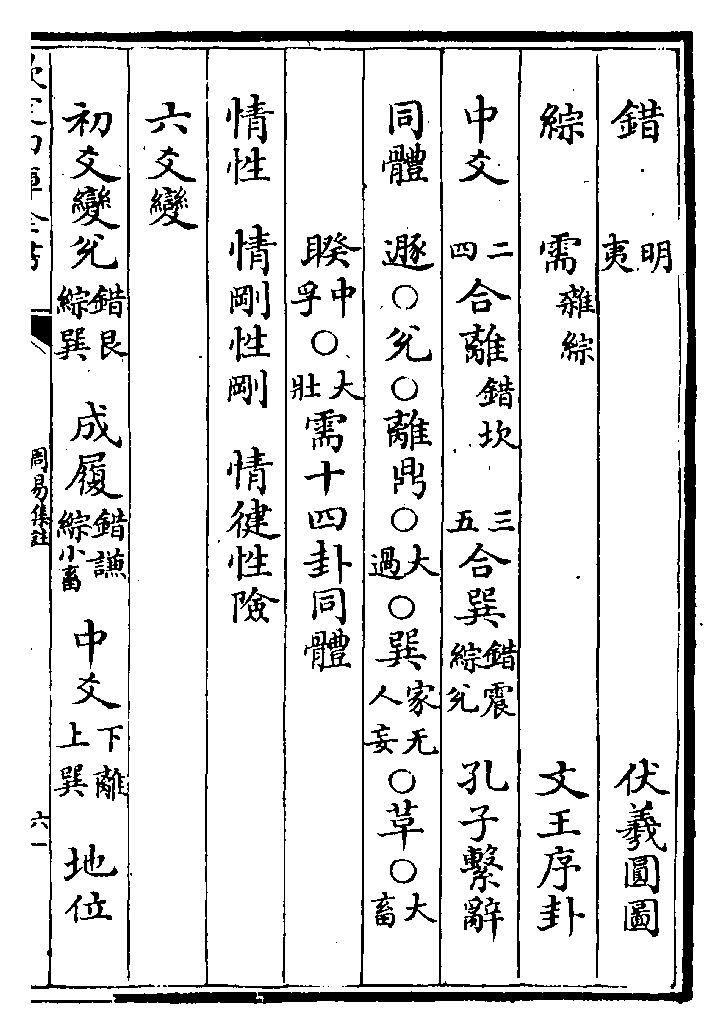 錯 明夷 伏羲圓圖
綜 需雜綜 文王序卦
中爻 二四合離錯坎 三五合巽錯震綜兊 孔子繫辭
同體 遯○兊○離鼎○大過○巽家人无妄○草○大畜
睽中孚○大壯需十四卦同體
情性 情剛性剛 情徤性險
六爻變
初爻變兊錯艮綜巽 成履錯謙綜小畜 中爻下離上巽 地位
周易集註
六一